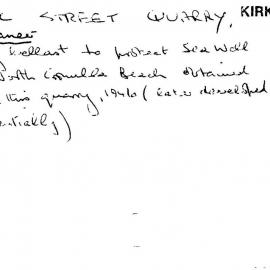 STREET QUARRY, KIRK
ballast to protect Sea Wall
Cronulla Beach obtained
this quarry, 1940 (later developed